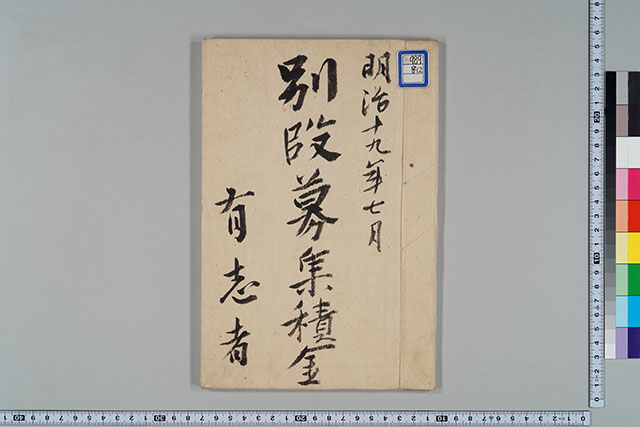 明治十九年七月
別段募集積金
有志者
989
812